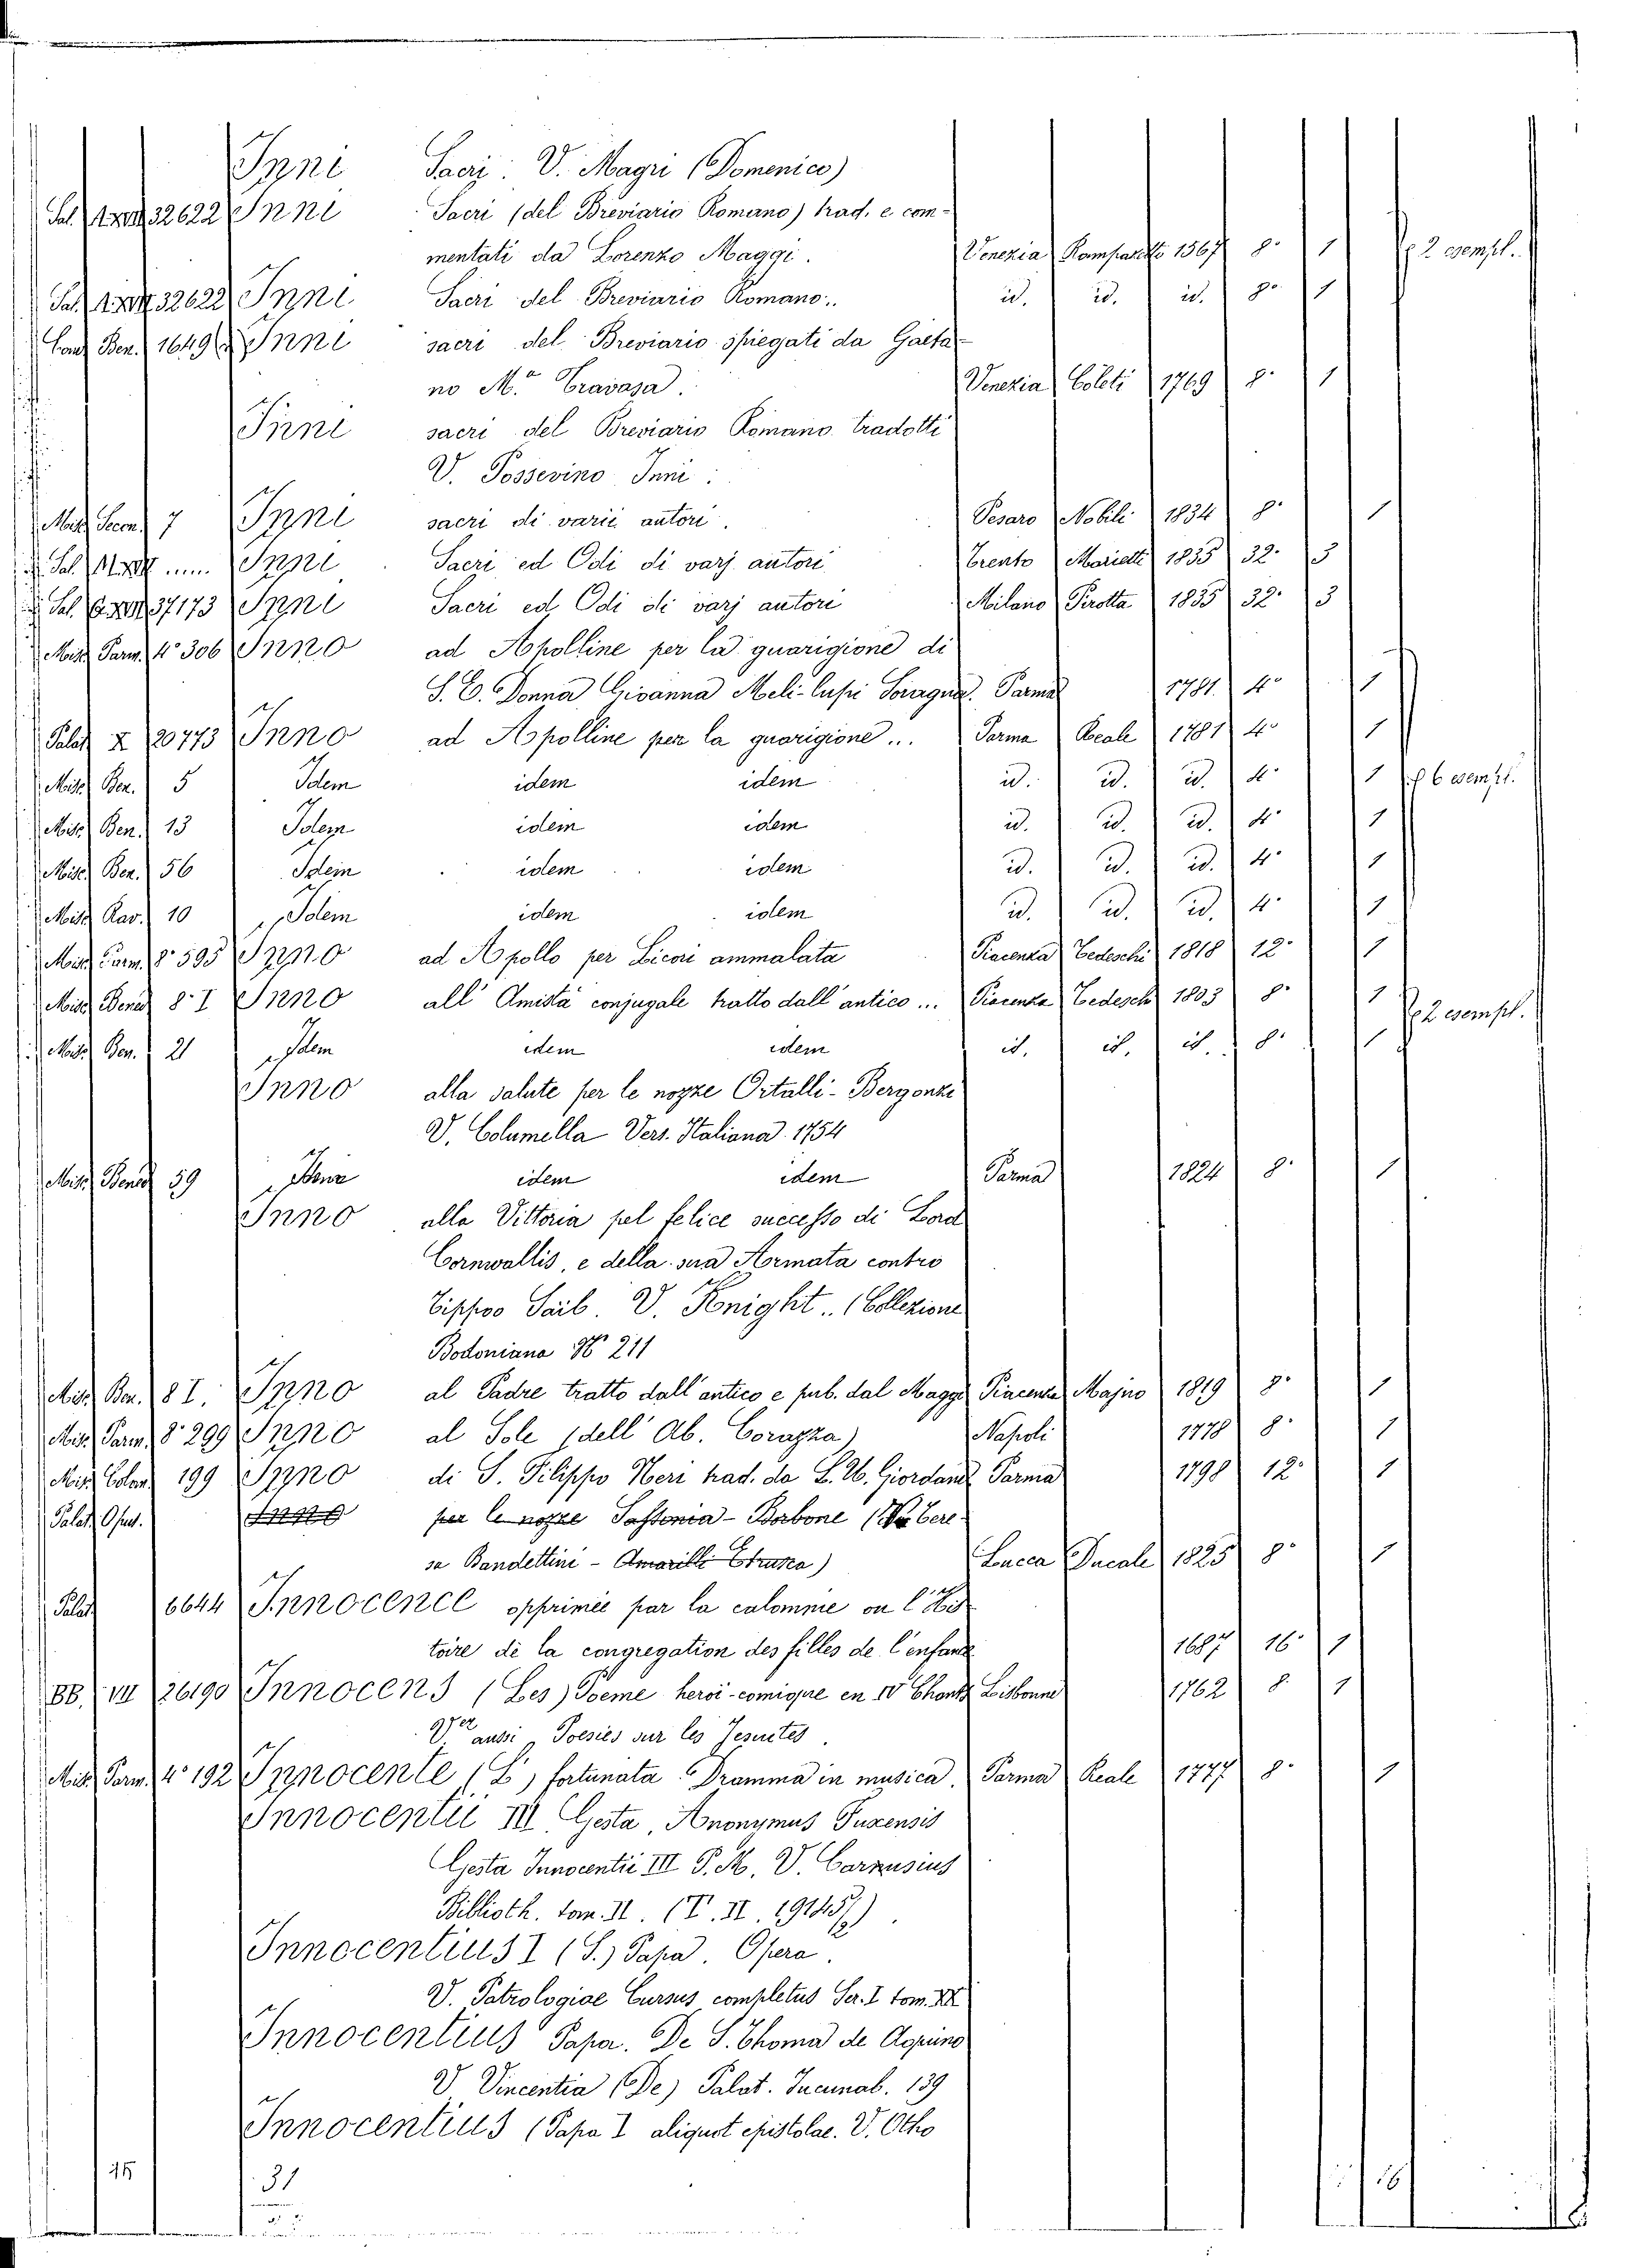 Inni Sacri: V. Magri (Domenico)
Sal. 32622 Inni Sacri (del Breviario Romano) trad. e com-
mentati da Lorenzo Maggi. Venezia 1567 8° 1 2 esempl.
Sal. 32622 Inni Sacri del Breviario Romano. id. id. id. 8° 1
Ben. 1649 Inni sacri del Breviario spiegati da Gaeta-
no M.a Travasa. Venezia Coleti 1769 8° 1
Inni sacri del Breviario Romano tradotti
V. Possevino Inni:
7 Inni sacri di varii autori. Pesaro Nobili 1834 8° 1
Sal. Inni Sacri ed Odi di varj autori Trento Marietti 1835 32° 3
Sal. 37173 Inni Sacri ed Odi di varj autori Milano Pirotta 1835 32° 3
Misc. Parm. 4° 306 Inno ad Apolline per la guarigione di
S. E. Donna Giovanna Meli-lupi Soragna. Parma 1781. 4° 1
Palat. X 20773 Inno ad Apolline per la guarigione... Parma Reale 1781 4° 1
Misc. Ben. 5 Idem idem idem id. id. id. 4° 1 6 esempl.
Misc. Ben. 13 Idem idem idem id. id. id. 4° 1
Misc. Ben. 56 Idem idem idem id. id. id. 4° 1
Misc. Rav. 10 Idem idem idem id. id. id. 4° 1
Misc. Parm. 8° 595 Inno ad Apollo per Licori ammalata Piacenza Tedeschi 1818 12° 1
Misc. Bened. 8° I Inno all' Amistà conjugale tratto dall' antico... Piacenza Tedeschi 1803 8° 1 2 esempl.
Misc. Ben. 21 Idem idem idem id. id. id. 8° 1
Inno alla salute per le nozze Ortalli-Bergonzi
V. Columella Vers. Italiana 1754
Misc. Bened. 59 Idem idem idem Parma 1824 8° 1
Inno alla Vittoria pel felice successo di Lord
Cornwallis, e della sua Armata contro
Tippoo Saib. V. Knight.. (Collezione
Bodoniana N° 211
Misc. Ben. 8 I. Inno al Padre tratto dall' antico e pub. dal Maggi Piacenza Majno 1819 8° 1
Misc. Parm. 8° 299 Inno al Sole (dell' Ab. Corazza) Napoli 1778 8° 1
Misc. Colom. 199 Inno di S. Filippo Neri trad. da L. U. Giordani Parma 1798 12° 1
Palat. Opusc. Inno per le nozze Sassonia-Borbone (Di Tere-
sa Bandettini - Amarilli Etrusca) Lucca Ducale 1825 8° 1
Palat. 6644 Innocence opprimée par la calomnie ou l'His-
toire de la congregation des filles de l'enfance 1687 16° 1
BB. VII 26190 Innocens (Les) Poeme heroi-comique en IV Chants Lisbonne 1762 8° 1
V.er aussi, Poesies sur les Jesuites.
Misc. Parm. 4° 192 Innocente (L') fortunata. Dramma in musica. Parma Reale 1777 8° 1
Innocentii III Gesta, Anonymus Fuxensis
Gesta Innocentii III P. M. V. Carnusius
Biblioth. tom. II. (T. II. 19145/2).
Innocentius I (S.) Papa. Opera.
V. Patrologiae Cursus completus Ser. I tom. XX
Innocentius Papa. De S. Thoma de Aquino
V. Vincentia (De) Palat. Incunab. 139
Innocentius (Papa I aliquot epistolae. V. Otho
31